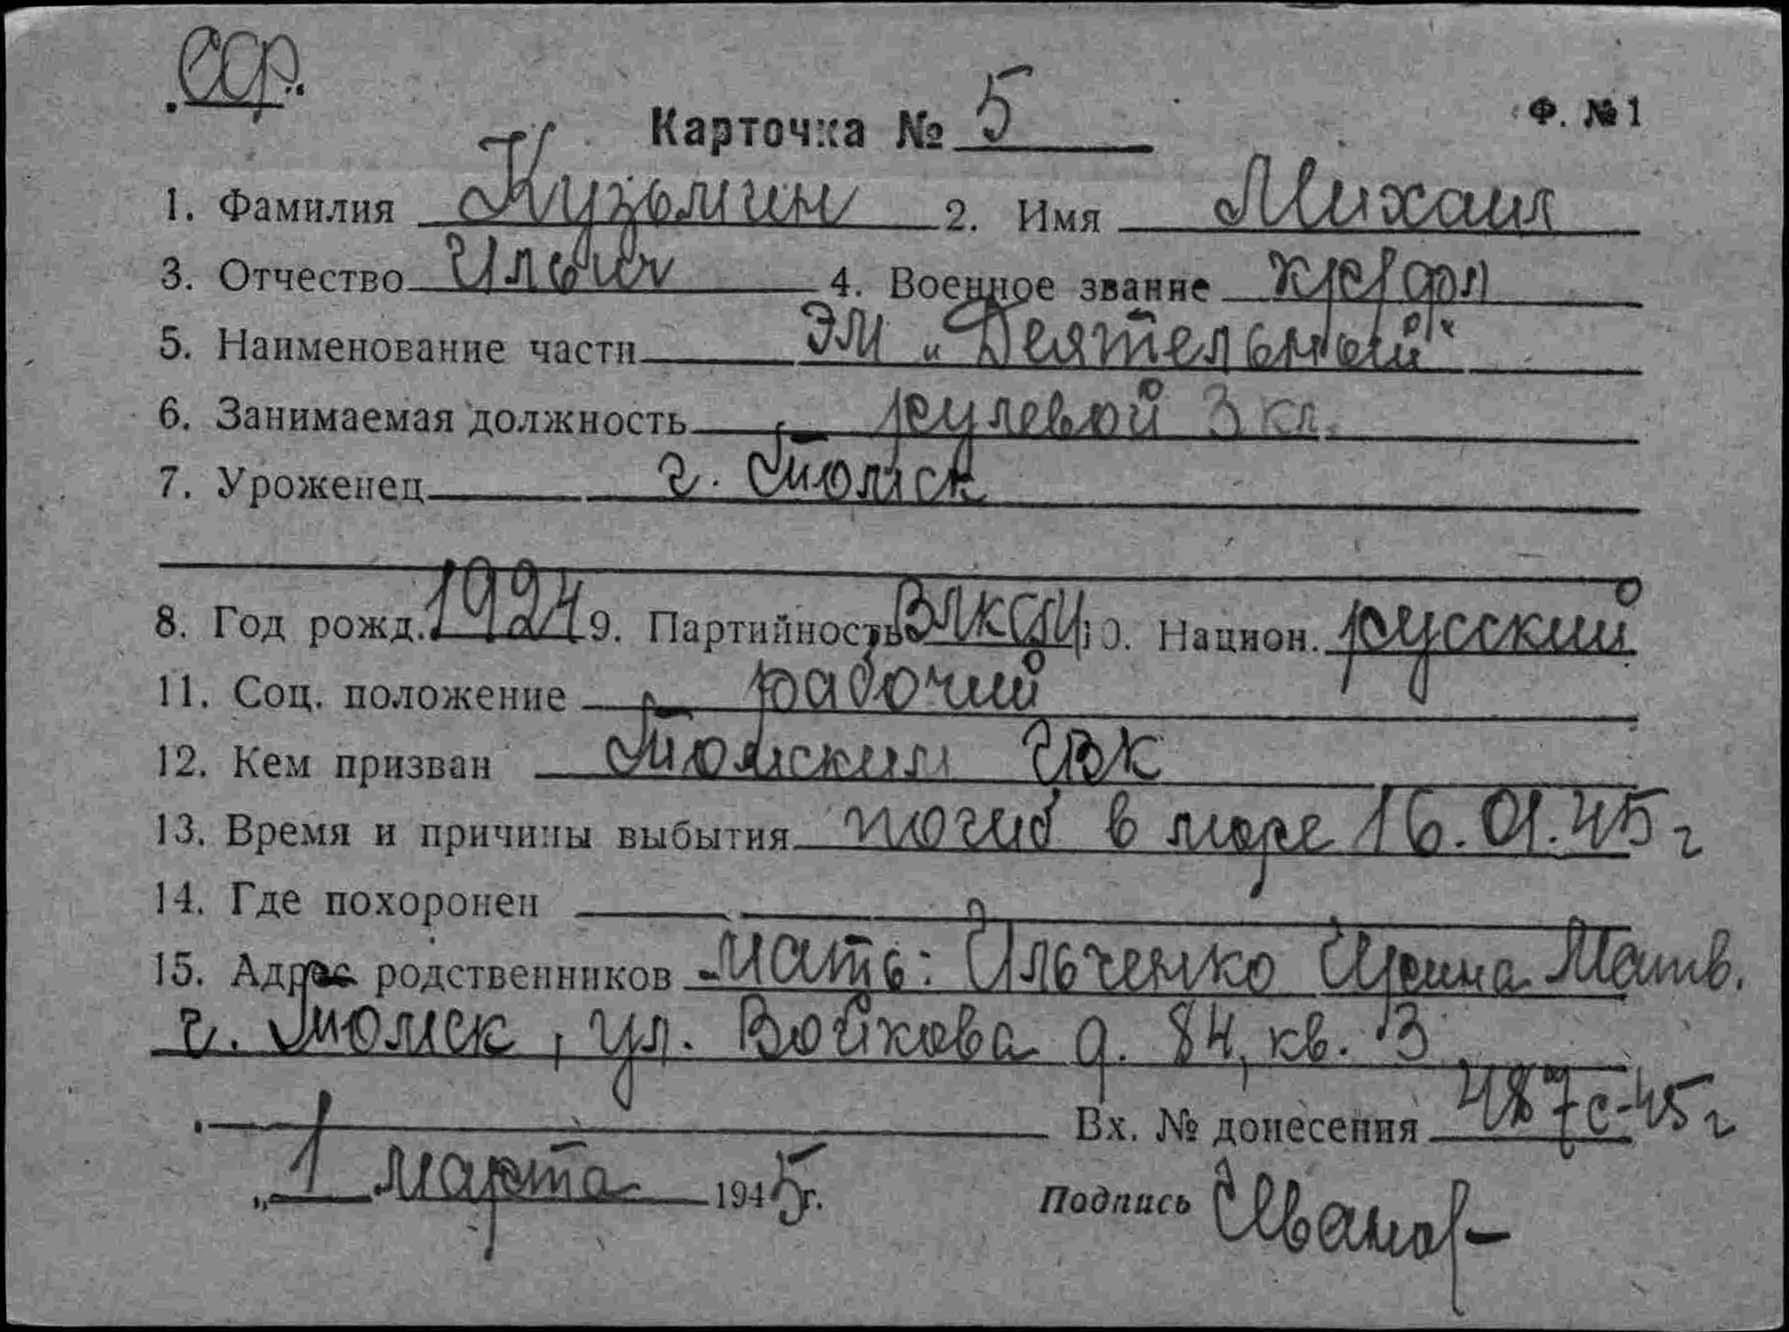 ССР.
Карточка № 5
Ф. № 1
1. Фамилия Кузьмин 2. Имя Михаил
3. Отчество Ильич 4. Военное звание кр/фл
5. Наименование части ЭМ „Деятельный"
6. Занимаемая должность рулевой 3 кл.
7. Уроженец г. Томск
8. Год рожд. 1924 9. Партийность ВЛКСМ 10. Национ. русский
11. Соц. положение рабочий
12. Кем призван Томским ГВК
13. Время и причины выбытия погиб в море 16.01.45 г
14. Где похоронен
15. Адрес родственников мать: Ильченко Ирина Матв.
г. Томск, ул. Войкова д. 84, кв. 3
Вх. № донесения 487с-45 г
„1 марта 1945 г.
Подпись Иванов